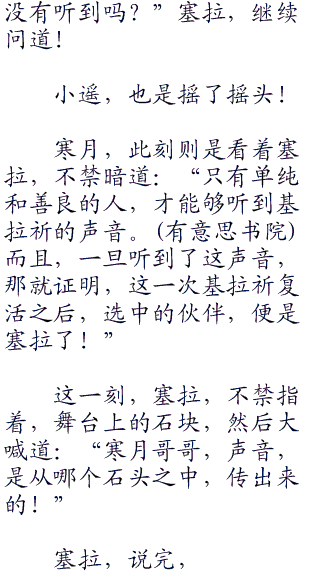 没有听到吗？”塞拉，继续
问道！
小遥，也是摇了摇头！
寒月，此刻则是看着塞
拉，不禁暗道：“只有单纯
和善良的人，才能够听到基
拉祈的声音。(有意思书院)
而且，一旦听到了这声音，
那就证明，这一次基拉祈复
活之后，选中的伙伴，便是
塞拉了！”
这一刻，塞拉，不禁指
着，舞台上的石块，然后大
喊道：“寒月哥哥，声音，
是从哪个石头之中，传出来
的！”
塞拉，说完，